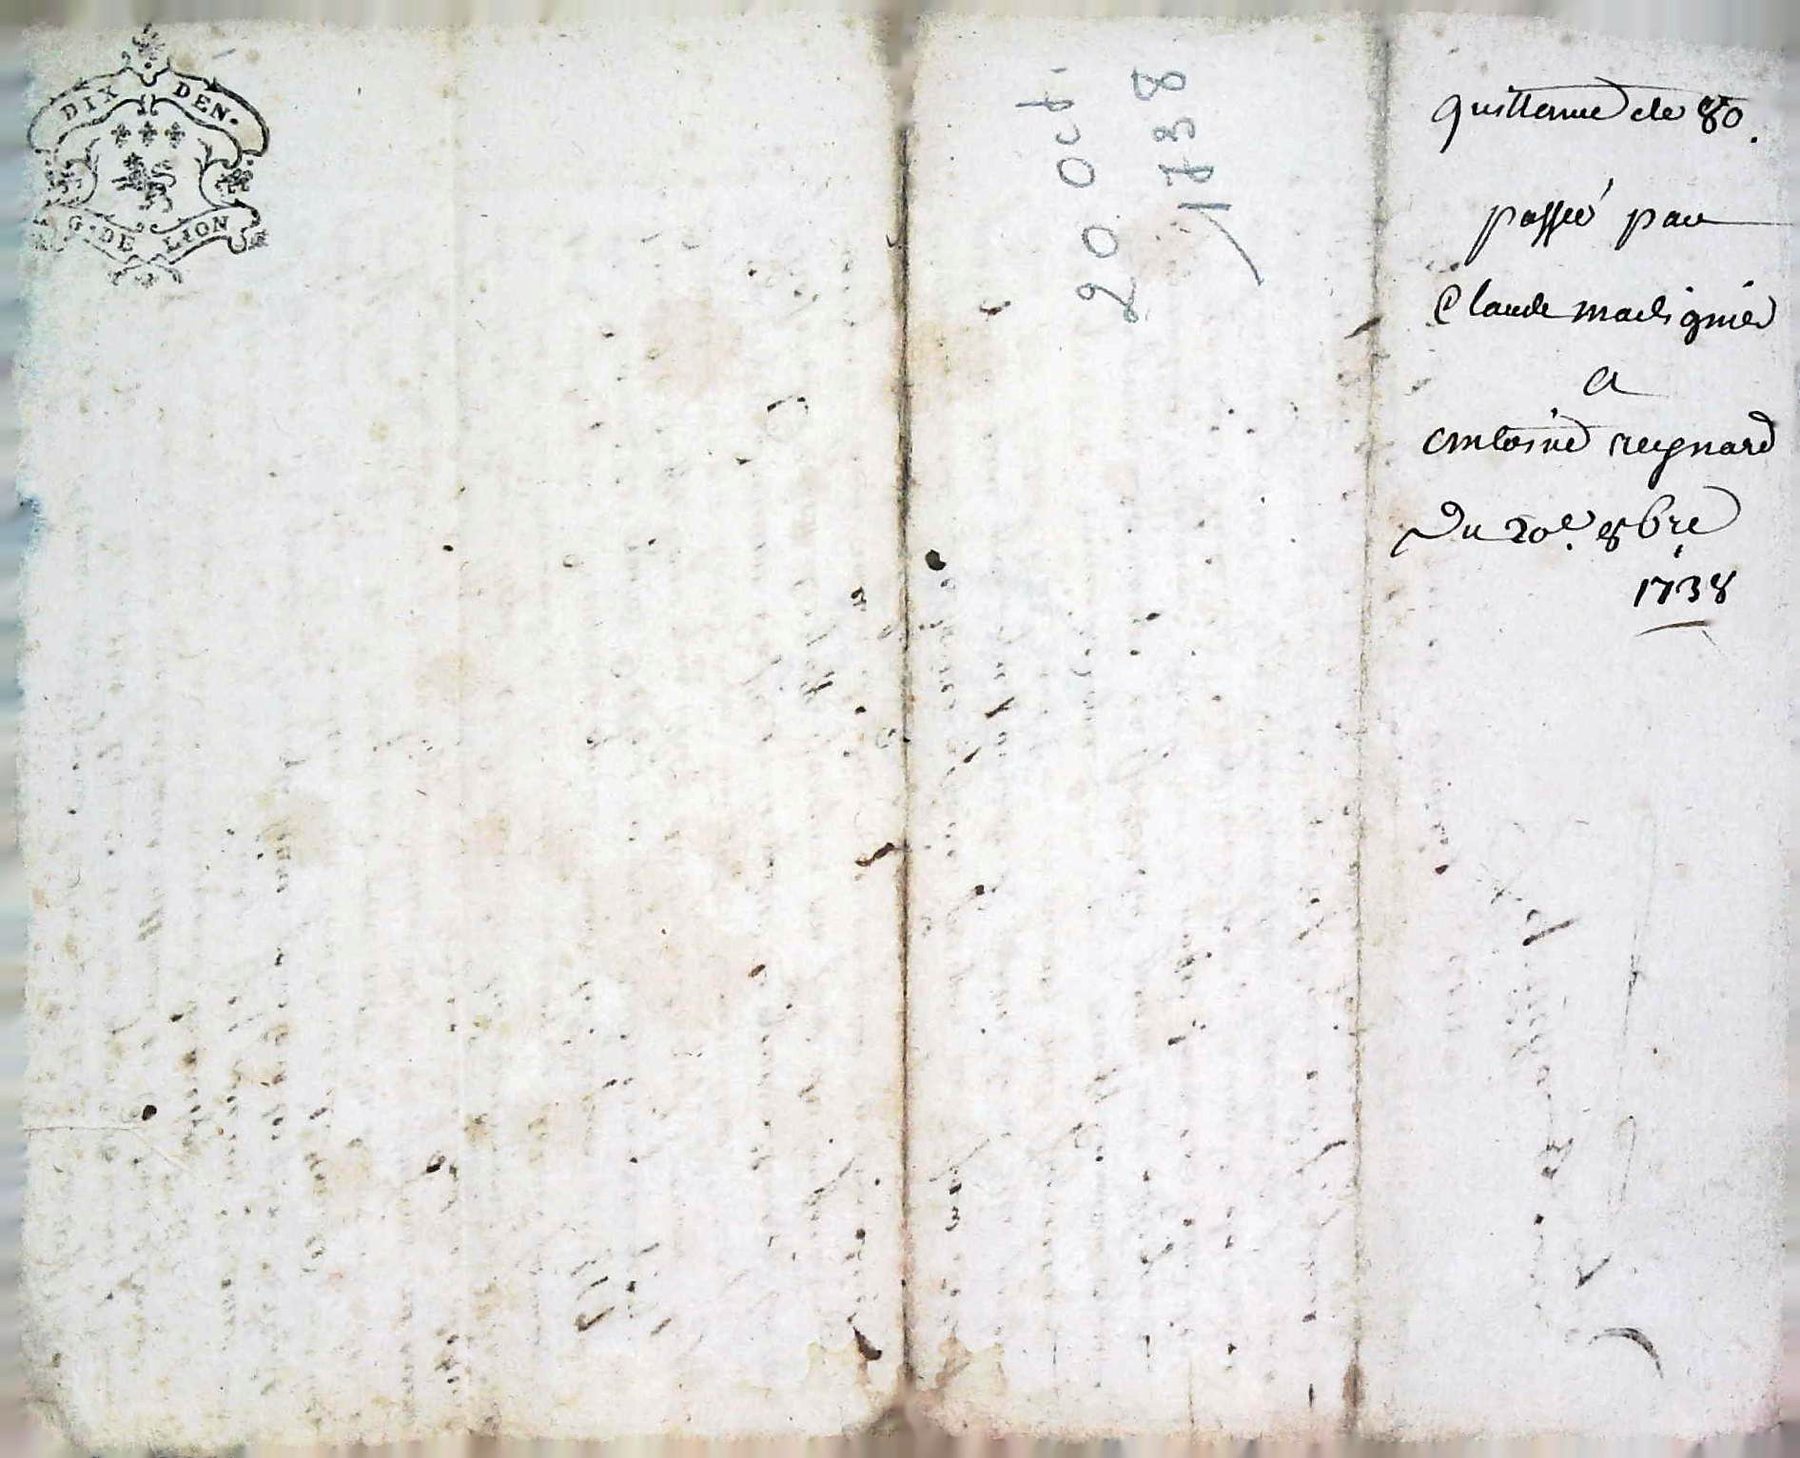 DIX DEN.
G. DE LION
20 Oct.
1738
quittance de 80.
passée par
Claude madignier
a
antoine reynard
Du 20e. 8bre
1738